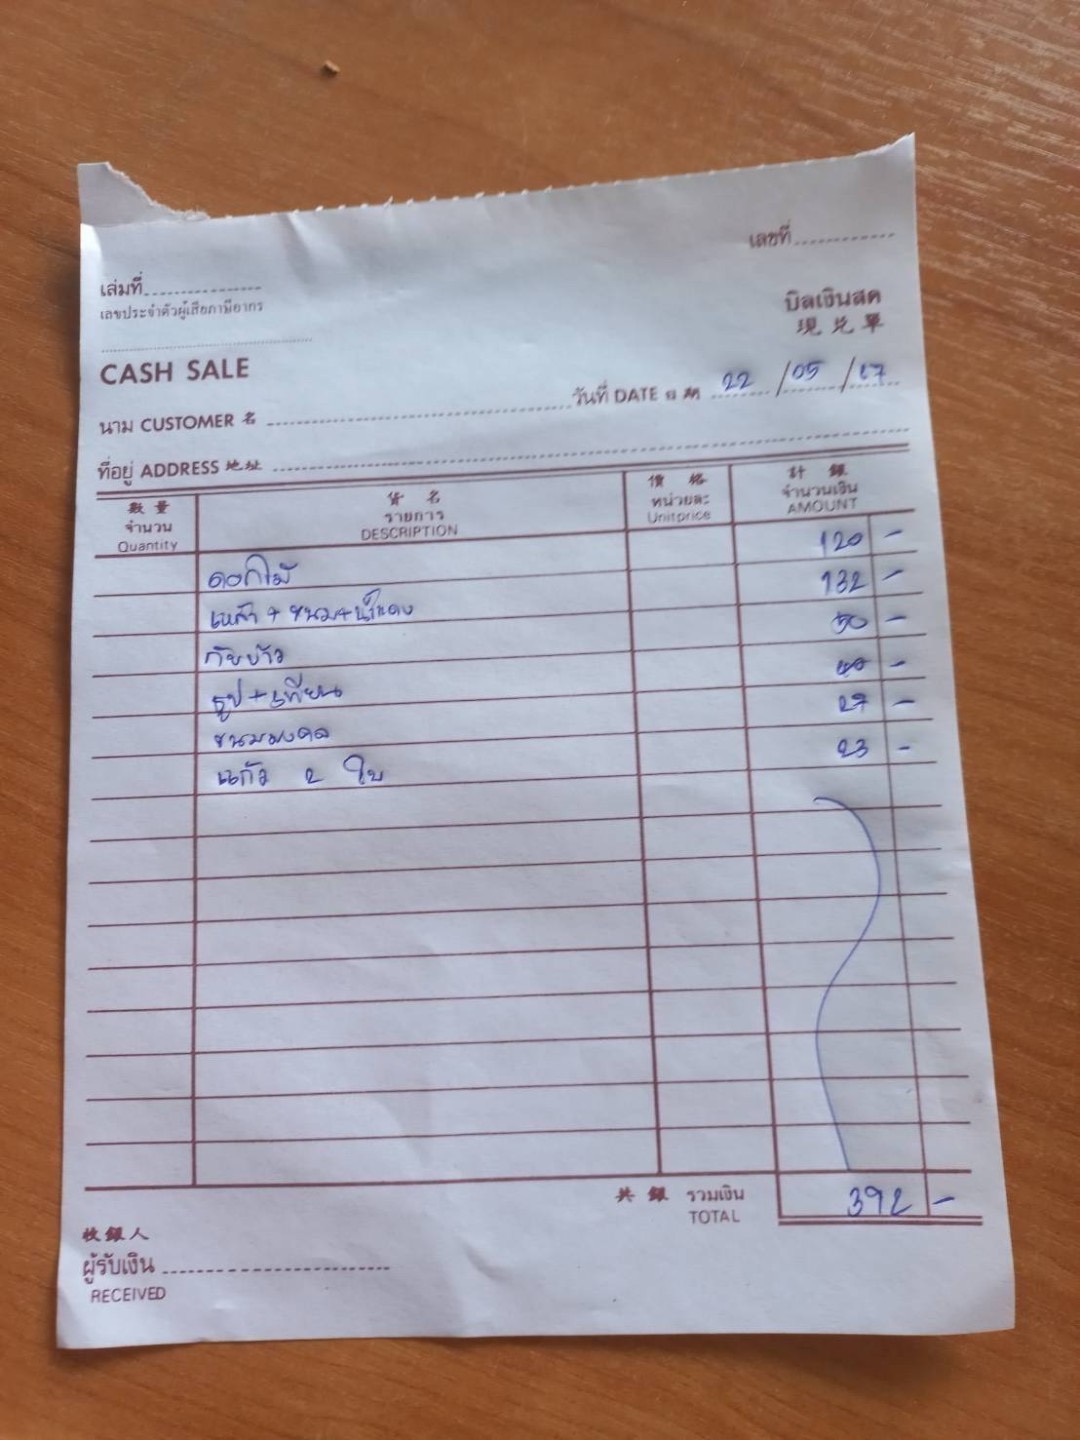 เลขที่
เล่มที่
เลขประจำตัวผู้เสียภาษีอากร
บิลเงินสด
現兑單
CASH SALE
วันที่ DATE 日期 22/05/67
นาม CUSTOMER 名
ที่อยู่ ADDRESS 地址
數量 貨名 價格 計銀
จำนวน รายการ หน่วยละ จำนวนเงิน
Quantity DESCRIPTION Unitprice AMOUNT
ดอกไม้ 120 -
เหล้า + ขนม+น้ำแดง 132 -
กับข้าว 50 -
ธูป+เทียน 40 -
ขนมมงคล 27 -
แก้ว 2 ใบ 23 -
共銀 รวมเงิน 392 -
TOTAL
收銀人
ผู้รับเงิน
RECEIVED